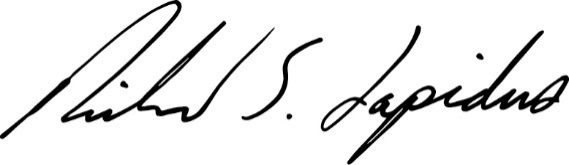 Richard S. Lapidus